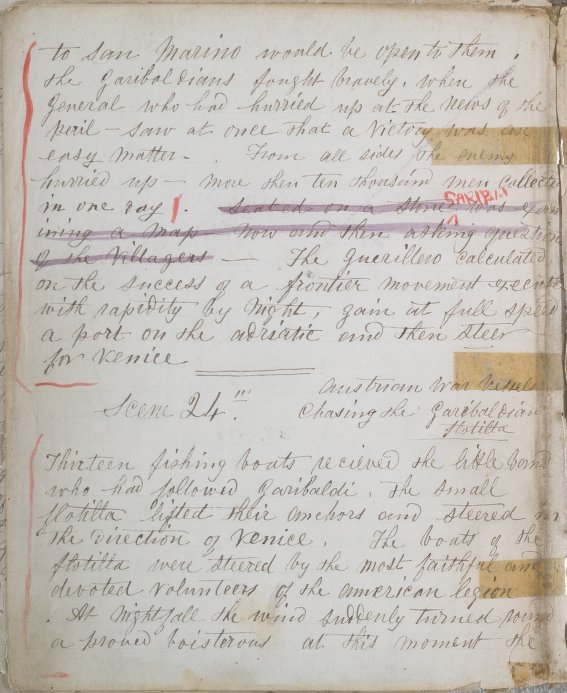 to San Marino would be open to them.
the Garibaldians fought bravely. when the
General who had hurried up at the news of the
peril – saw at once that a Victory was an
easy matter – . From all sides the enemy
hurried up – more then ten thousand men collecte
in one ray . Seated on a stone was exam
GARIBALDI
ining a map Now and then asking question
of the Villagers — The Guerillero calculated
on the success of a frontier movement execute
with rapidity by Night, gain at full speed
a port on the adriatic and then steer
for Venice
Austrian War Vessels
Scene 24''' . Chasing the Garibaldian
flotilla
Thirteen fishing boats recieved the little band
who had followed Garibaldi. the small
flotilla listed their anchors and steered in
the direction of Venice. The boats of the
flotilla were steered by the most faithful and
devoted volunteers of the american legion
. At Nightfall the wind suddenly turned round
a proved boisterous at this moment the